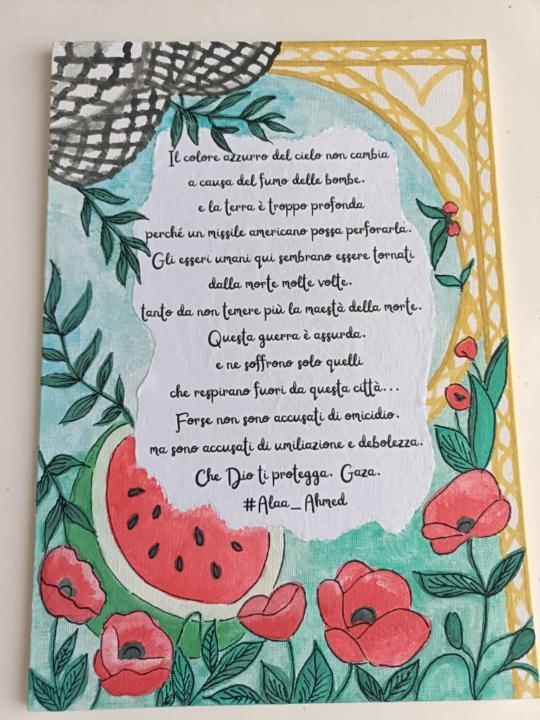 Il colore azzurro del cielo non cambia
a causa del fumo delle bombe.
e la terra è troppo profonda
perché un missile americano possa perforarla.
Gli esseri umani qui sembrano essere tornati
dalla morte molte volte.
tanto da non temere più la maestà della morte.
Questa guerra è assurda.
e ne soffrono solo quelli
che respirano fuori da questa città...
Forse non sono accusati di omicidio.
ma sono accusati di umiliazione e debolezza.
Che Dio ti protegga. Gaza.
#Alaa_Ahmed